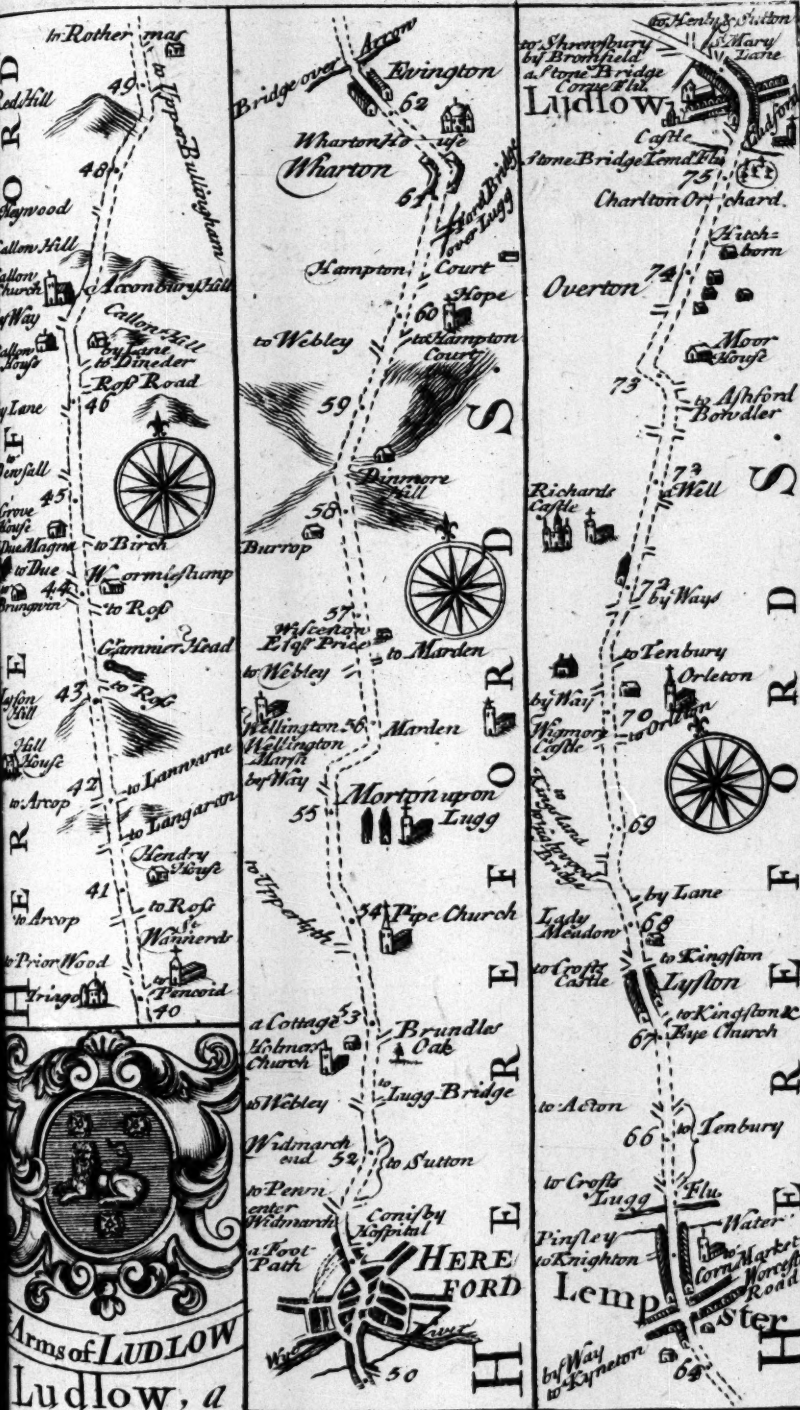 to Rother mas
to Upper Bullingham
49
Red Hill
48
Heywood
Callon Hill
Callon
Church
Acconbury Hill
by Way
Callow Hill
by Lane
to Dineder
House
Roſs Road
46
by Lane
to
Dewsall
45
Grove
House
Due Magna
to Birch
to Due
Wormlestump
44
Brungwin
to Roſs
Gamnier Head
to Roſs
43
Lyſon
Hill
Hill
House
42
to Lanwarne
to Arcop
to Langaron
Hendry
House
41
to Roſs
to Arcop
St
Wannerds
to Prior Wood
Triago
to
Pencoid
40
Arms of LUDLOW
Ludlow, a
HEREFORD
Bridge over Arrow
Evington
62
Wharton House
Wharton
61
Ford Bridge
over Lugg
Hampton Court
Hope
60
to Webley
to Hampton
Court
59
Dinmore
Hill
58
Burrop
57
Wisteston
Esqr. Price
to Marden
to Webley
Wellington
56
Marden
Wellington
Marsh
by Way
Morton upon
Lugg
55
to Upper Lyth
54
Pipe Church
53
a Cottage
Brundles
Oak
Holmer
Church
to
Lugg Bridge
to Webley
Widmarch
end
52
to Sutton
to Penn
enter
Widmarch
Conisby
Hospital
a Foot
Path
HERE
FORD
Wye
River
50
HEREFORDS.
to Henly & Sutton
St Mary
Lane
to Shrewsbury
by Bromfield
a Stone Bridge
Corve Flu.
Ludlow
Ludford
Castle
Stone Bridge Temd Flu
75
Charlton Orchard.
Hitch=
born
74
Overton
Moor
House
73
to Ashford
Bowdler
72
a Well
Richards
Castle
72
by Ways
to Tenbury
Orleton
by Way
70
to Orleton
Wigmore
Castle
69
to
Kingsland
Bridge
by Lane
Lady
Meadow
68
to Kingſton
to Crofts
Castle
Lyſton
to Kingſton &
Eye Church
67
to Acton
66
to Tenbury
to Crofts
Lugg Flu.
Pinsley
Water
to Knighton
to
Corn Market
Worcest
Road
Lemp
ster
by Way
to Kyneton
64
HEREFORDS.